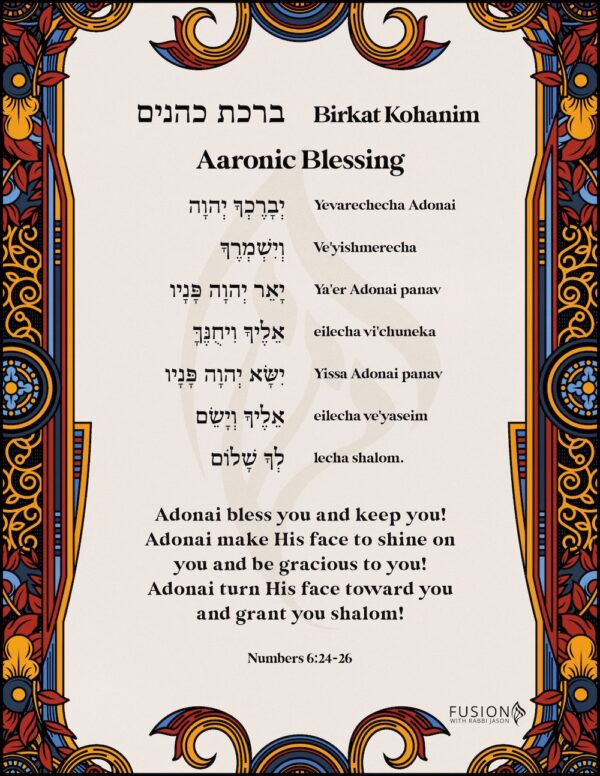 ברכת כהנים Birkat Kohanim
Aaronic Blessing
יְבָרֶכְךָ יְהוָה Yevarechecha Adonai
וְיִשְׁמְרֶךָ Ve'yishmerecha
יָאֵר יְהוָה פָּנָיו Ya'er Adonai panav
אֵלֶיךָ וִיחֻנֶּךָּ eilecha vi'chuneka
יִשָּׂא יְהוָה פָּנָיו Yissa Adonai panav
אֵלֶיךָ וְיָשֵׂם eilecha ve'yaseim
לְךָ שָׁלוֹם lecha shalom.
Adonai bless you and keep you!
Adonai make His face to shine on
you and be gracious to you!
Adonai turn His face toward you
and grant you shalom!
Numbers 6:24-26
FUSION
WITH RABBI JASON